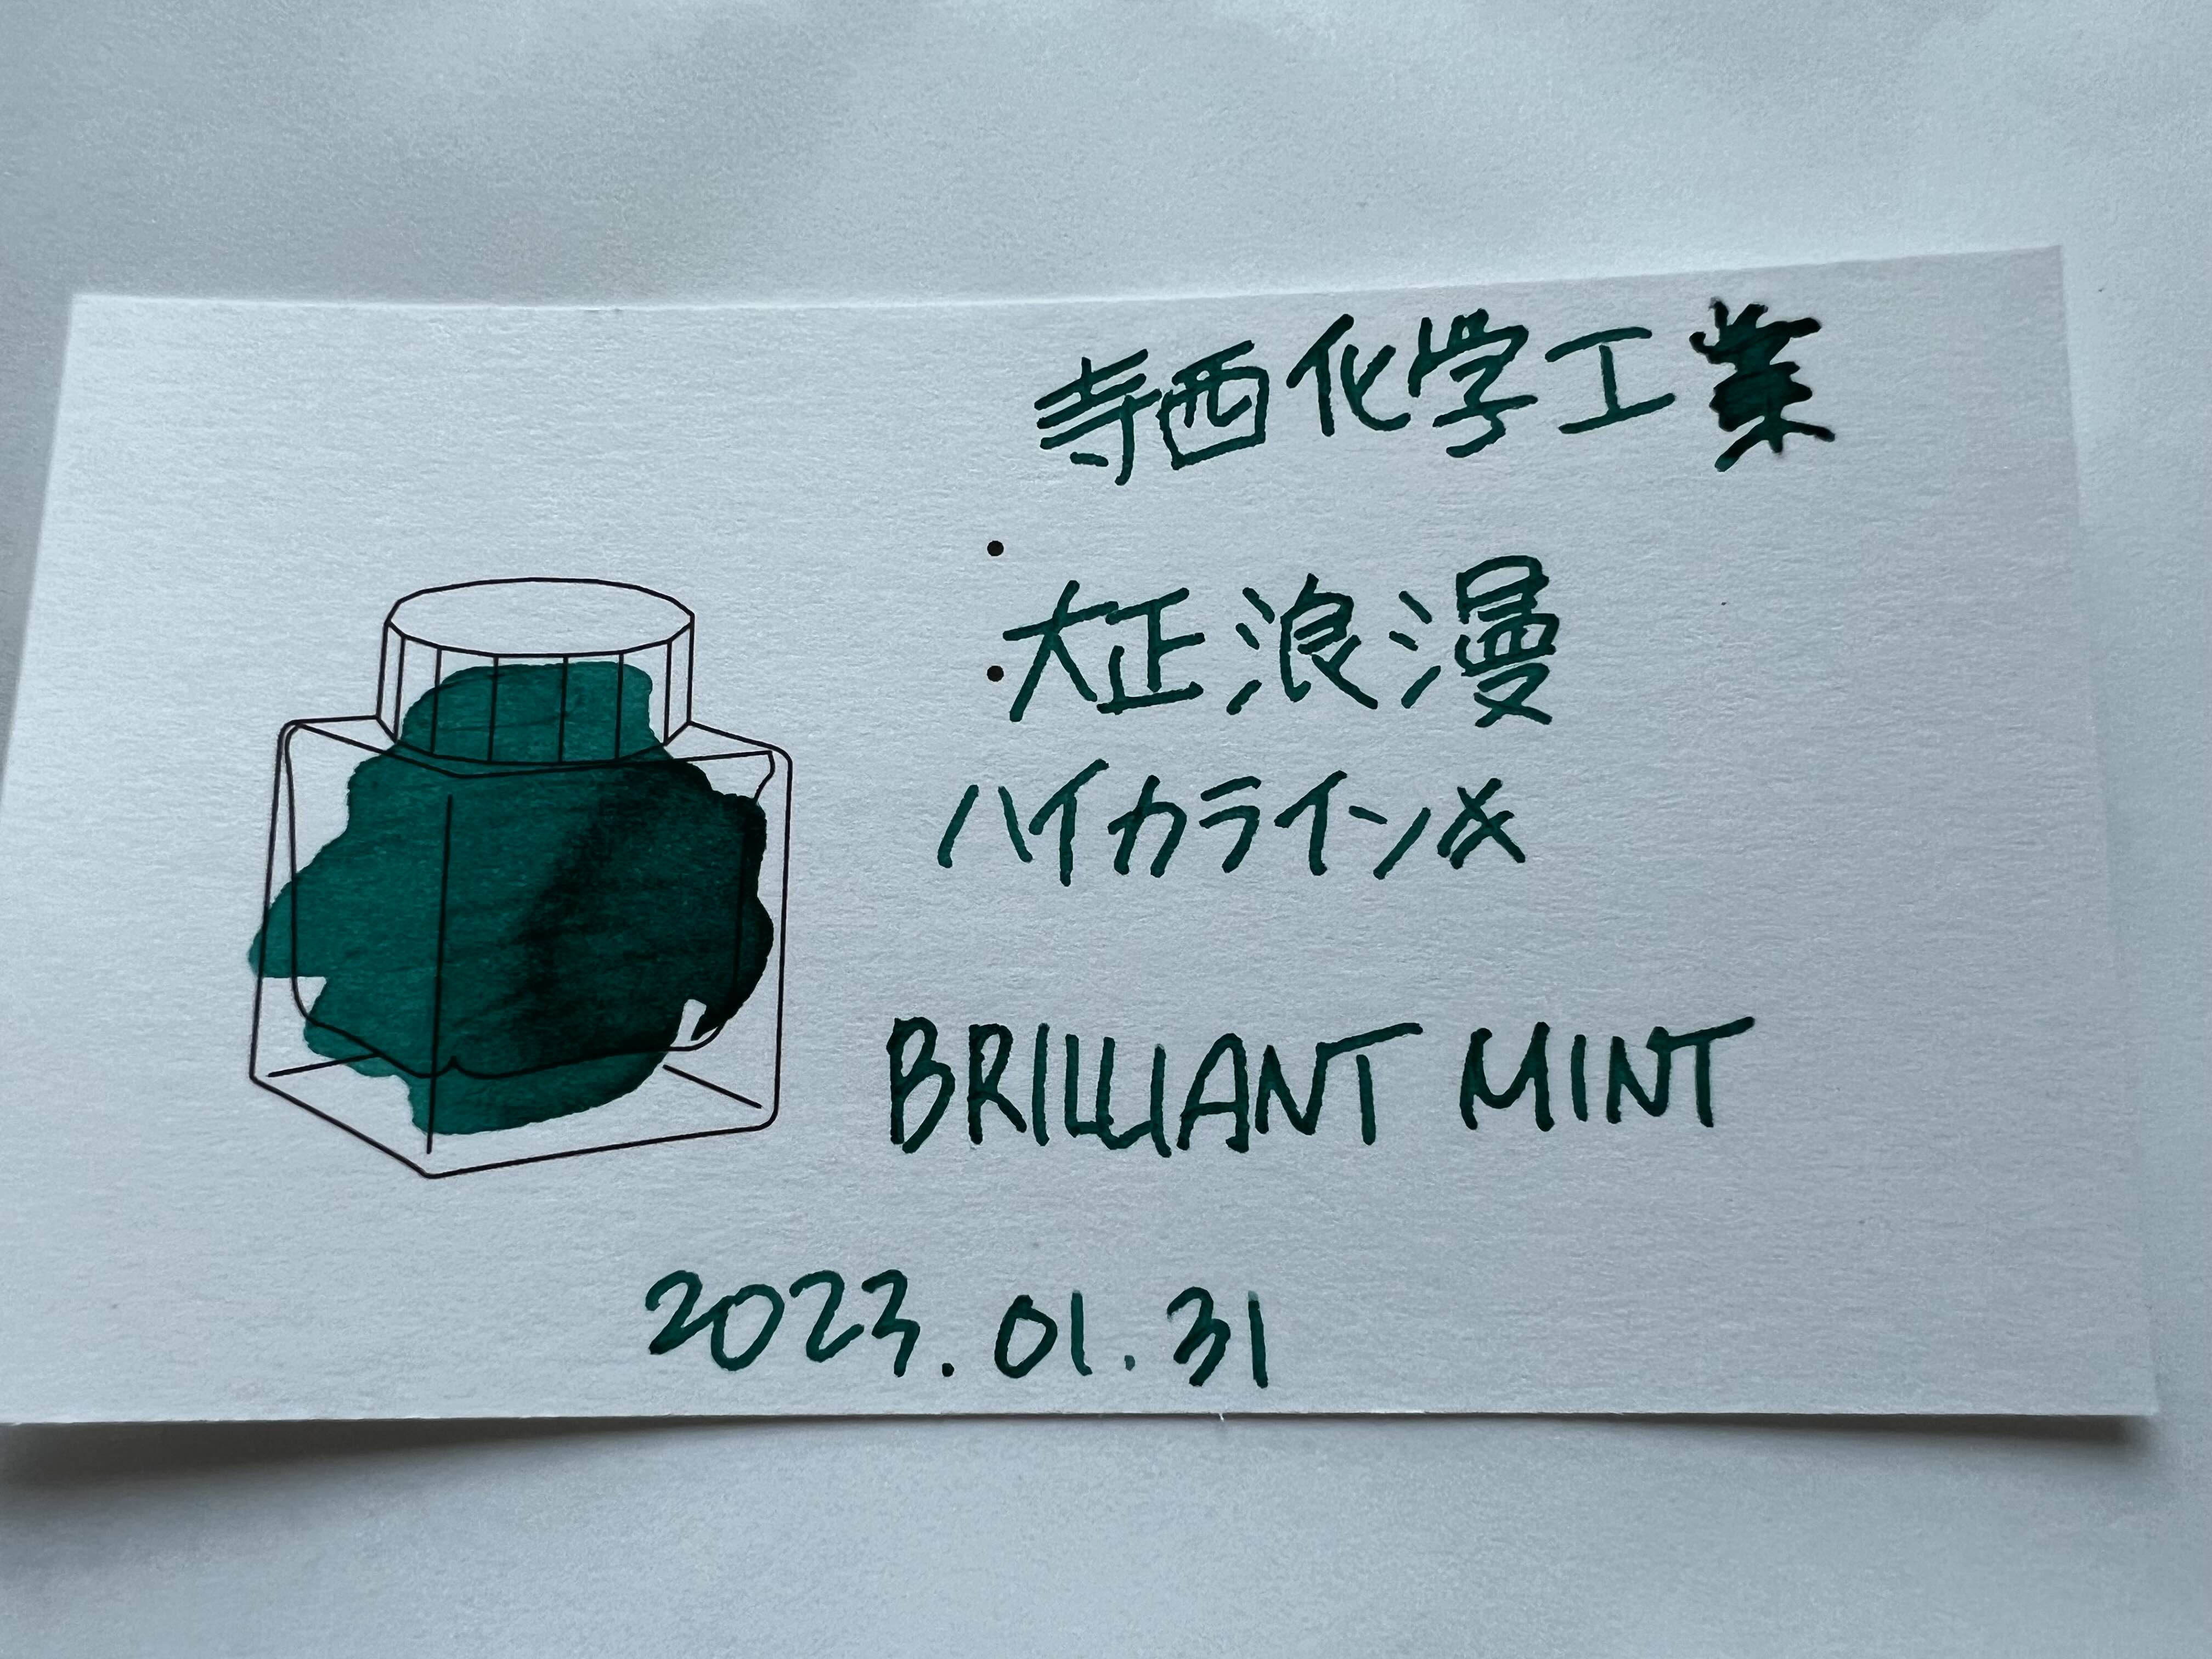 寺西化学工業
大正浪漫
ハイカラインキ
BRILLIANT MINT
2023.01.31